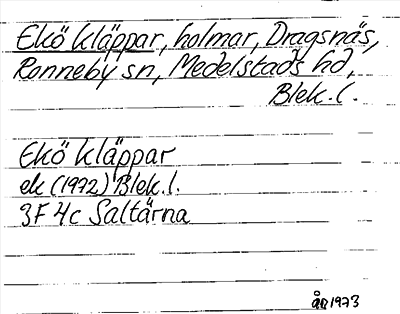 Ekö kläppar, holmar, Dragsnäs,
Ronneby sn, Medelstads hd,
Blek. l.
Ekö kläppar
ek (1972) Blek. l.
3F 4c Saltärna
år 1973